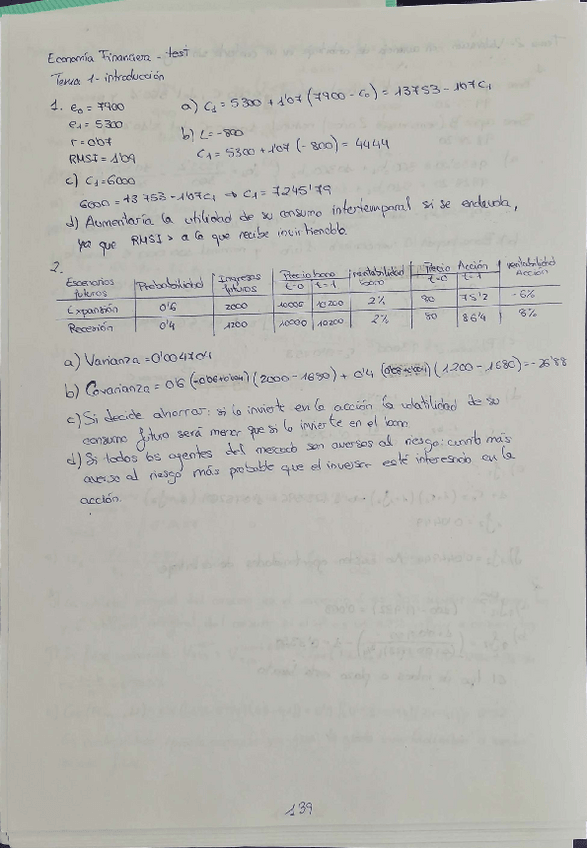 Economía Financiera - test
Tema 1 - introducción
1. e0 = 7900
e1 = 5300
r = 0'07
RMSI = 1'09
a) C1 = 5300 + 1'07 (7900 - C0) = 13753 - 1'07C1
b) L = -800
C1 = 5300 + 1'07 (-800) = 4444
c) C1 = 6000
6000 = 13753 - 1'07C1 → C1 = 7245'79
d) Aumentaría la utilidad de su consumo intertemporal si se endeuda,
ya que RMSI > a la que recibe invirtiendo.
2.
Escenarios futuros | Probabilidad | Ingresos futuros | Precio bono t=0 | t=1 | rentabilidad bono | Precio Acción t=0 | t=1 | rentabilidad Acción
Expansión | 0'6 | 2000 | 10000 | 10200 | 2% | 80 | 75'2 | -6%
Recesión | 0'4 | 1200 | 10000 | 10200 | 2% | 80 | 86'4 | 8%
a) Varianza = 0'004704
b) Covarianza = 0'6 (-0'06+0'004) (2000 - 1680) + 0'4 (0'08+0'004) (1200 - 1680) = -26'88
c) Si decide ahorrar: si lo invierte en la acción la volatilidad de su
consumo futuro será menor que si lo invierte en el bono
d) Si todos los agentes del mercado son aversos al riesgo: cuanto más
averso al riesgo más probable que el inversor esté interesado en la
acción.
139